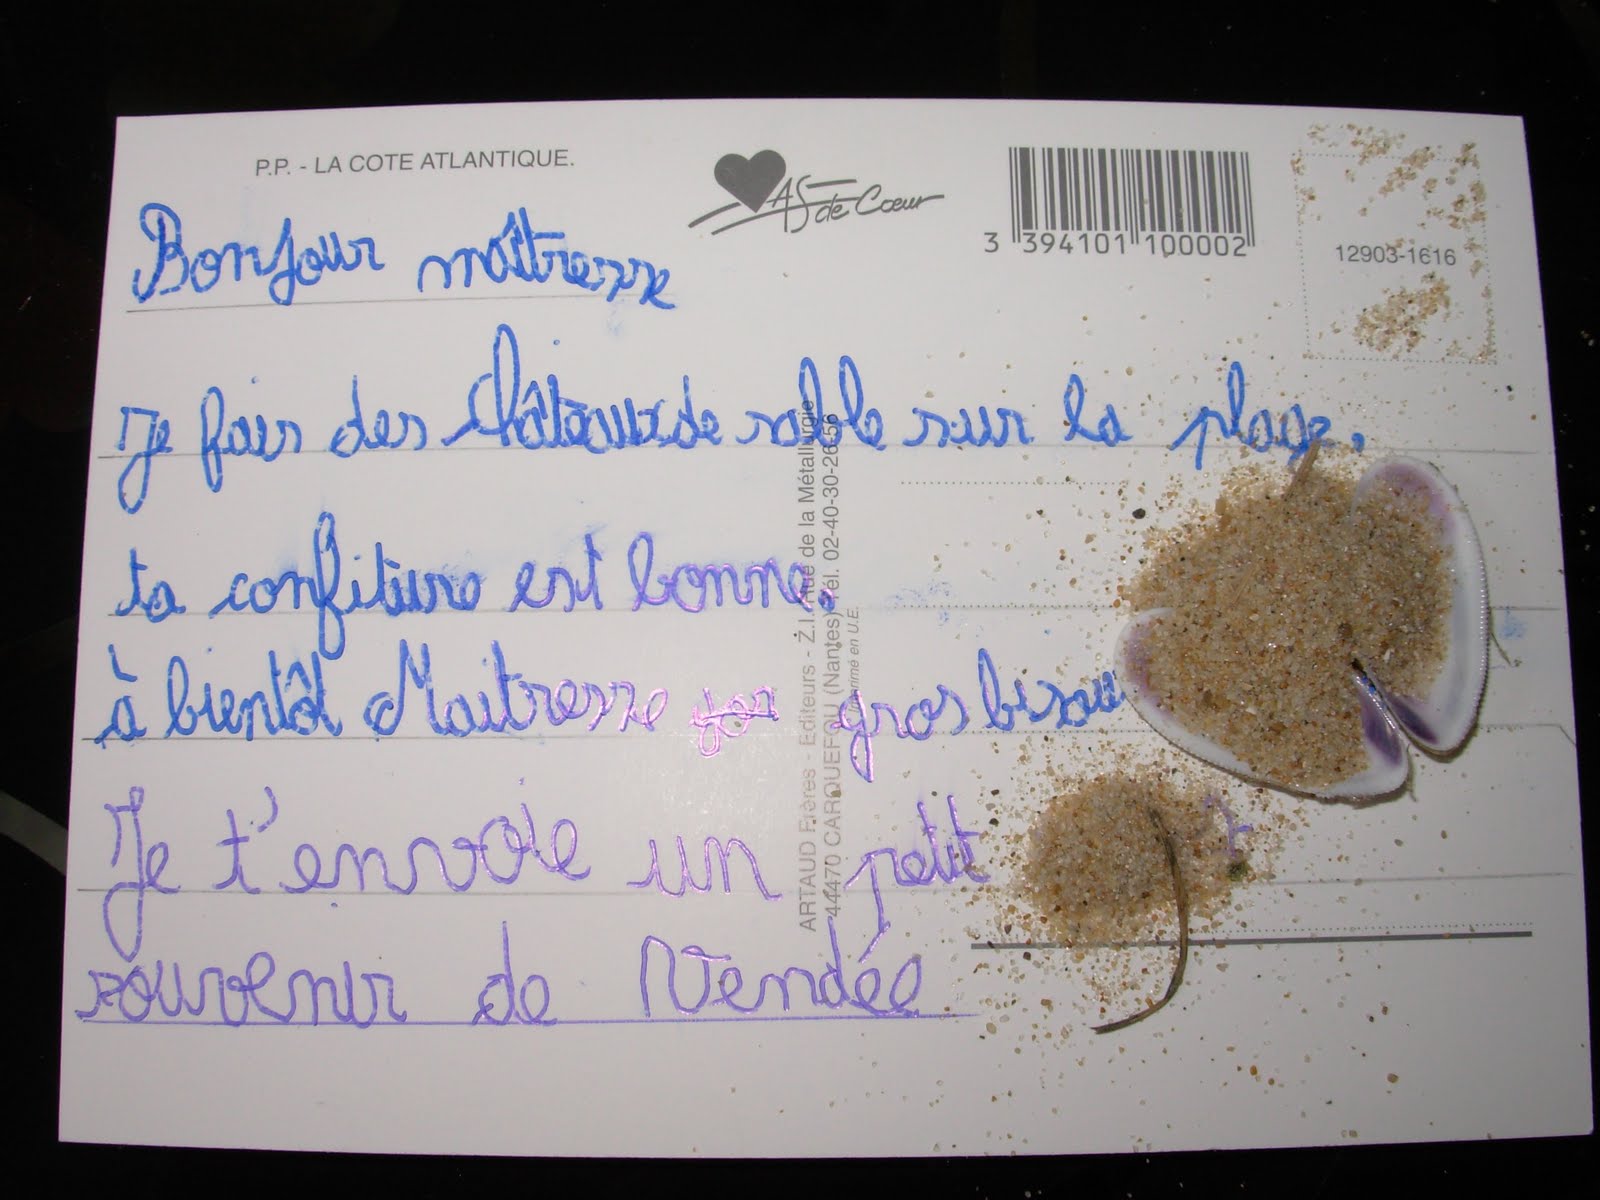 P.P. - LA COTE ATLANTIQUE.
AS de Cœur
3 394101 100002
12903-1616
Bonjour maîtresse
Je fais des châteaux de sable sur la plage.
ta confiture est bonne.
à bientôt Maitresse gros bisou
Je t'envoie un petit
souvenir de Vendée
ARTAUD Frères - Editeurs - Z.I. Rue de la Métallurgie
44470 CARQUEFOU (Nantes) Tél. 02-40-30-26-56
imprimé en U.E.